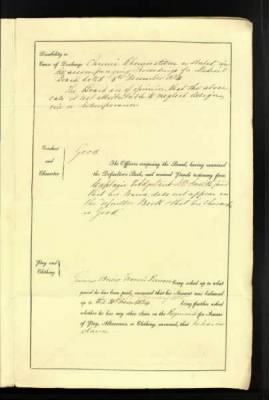 Disability or
Cause of Discharge Chronic Rheumatism as stated in
the accompanying Proceedings of a Medical
Board dated 8th December
The Board are of opinion that the above
case is not attributable to neglect design
vice or intemperance
Conduct
and
Character
Good
The Officers composing the Board, having examined
the Defaulters Book, and received Parole testimony from
Captain Adjutant
that his Name does not appear in
the Defaulter Book that his Character
is Good
Pay and
Clothing
being asked up to what
period he has been paid, answered that his Account was balanced
up to the being further asked
whether he has any other claim on the Regiment for Arrears
of Pay, Allowances, or Clothing, answered, that he has no
claim